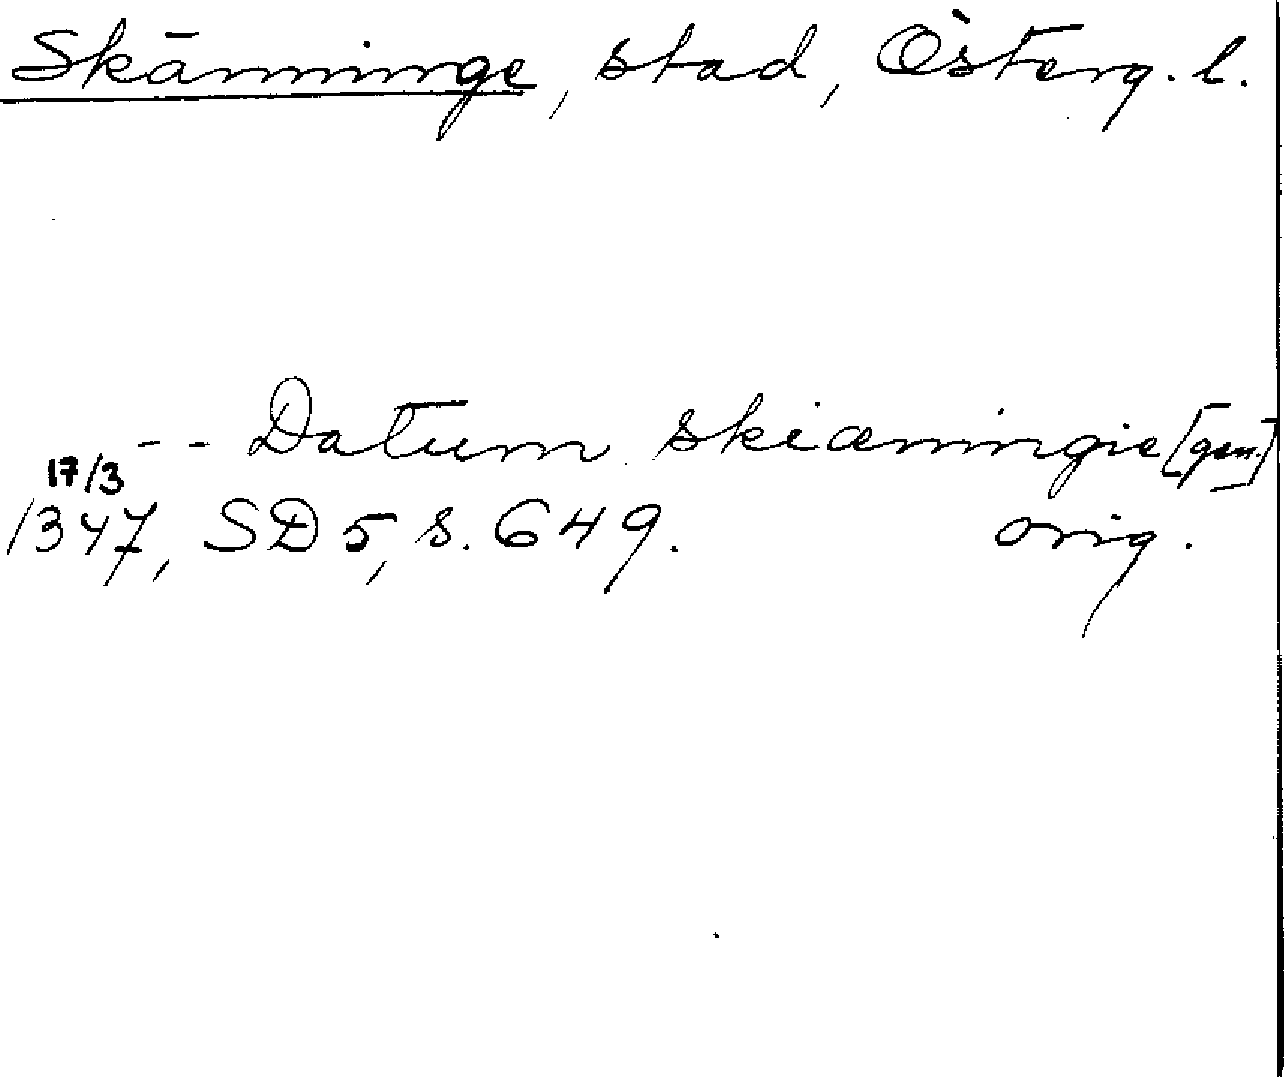 Skänninge, stad, Österg. l.
-- Datum skiæningie [gen.]
17/3
1347, SD 5, s. 649. orig.